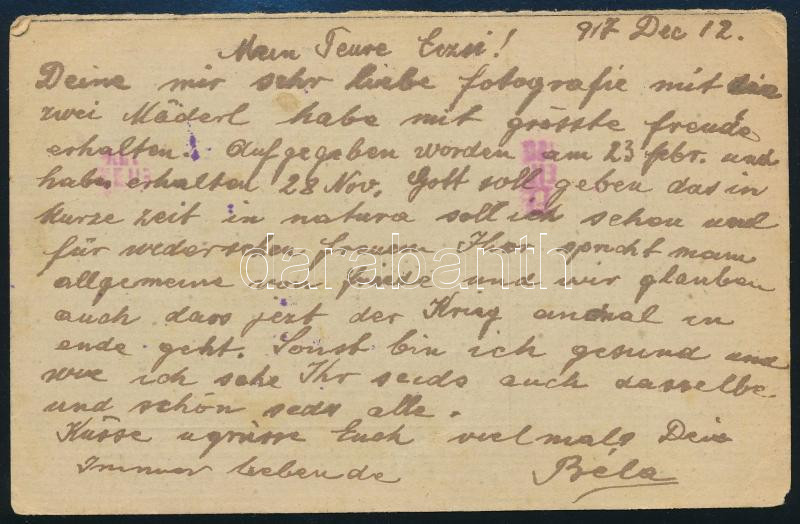 917 Dec 12.
Mein Teure Erzsi!
Deine mir sehr liebe fotografie mit die
zwei Mäderl habe mit grösste freude
erhalten. Aufgegeben worden am 23 febr. und
habe erhalten 28 Nov. Gott soll geben das in
kurze zeit in natura soll ich sehen und
für wedersehen freuen. Hier spricht man
allgemeine von friede und wir glauben
auch dass jezt der Krieg an in
ende geht. Sonst bin ich gesund und
wie ich sehe Ihr seids auch dasselbe
und schön seds alle.
Küsse u grüsse Euch vielmals Dein
Immer liebende Béla
darabanth